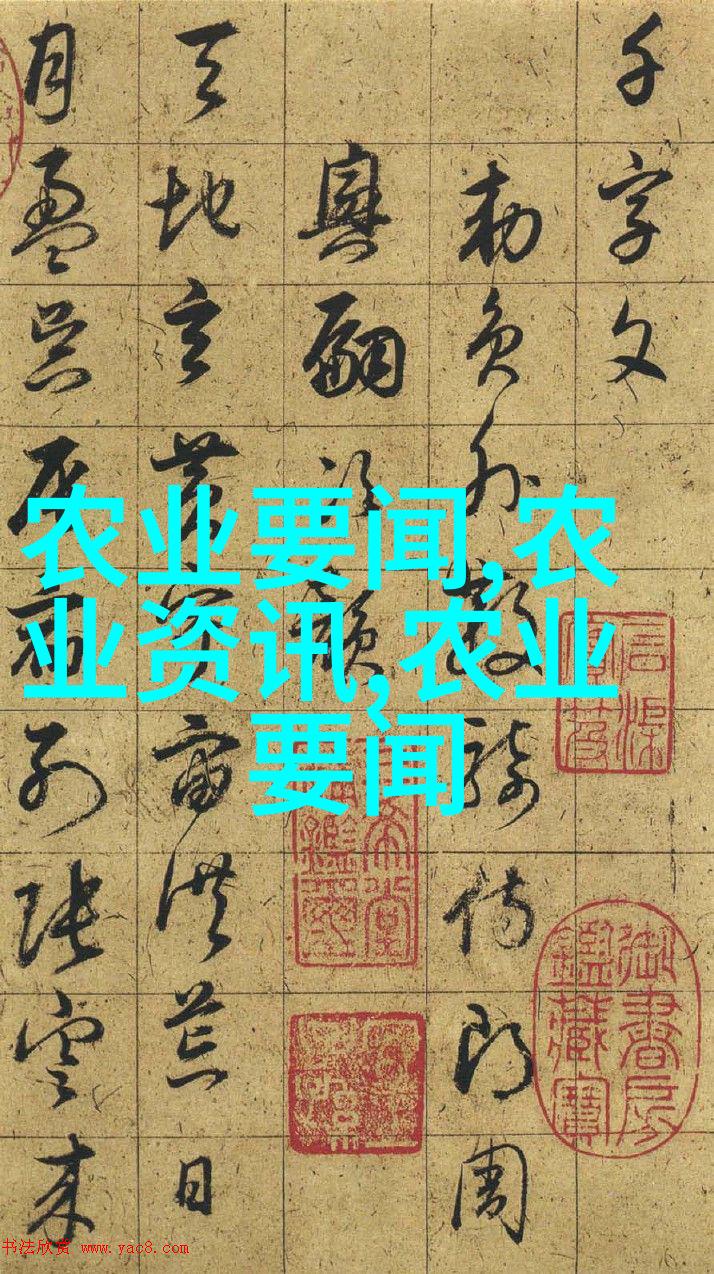 千字文
勅員外散騎侍郎周
興嗣次韻
天地玄黃宇宙洪荒日
月盈昃辰宿列張寒來
农业要闻,农
业资讯,农业
要闻
御書房
鑑藏寶
书法欣赏 www.yac8.com